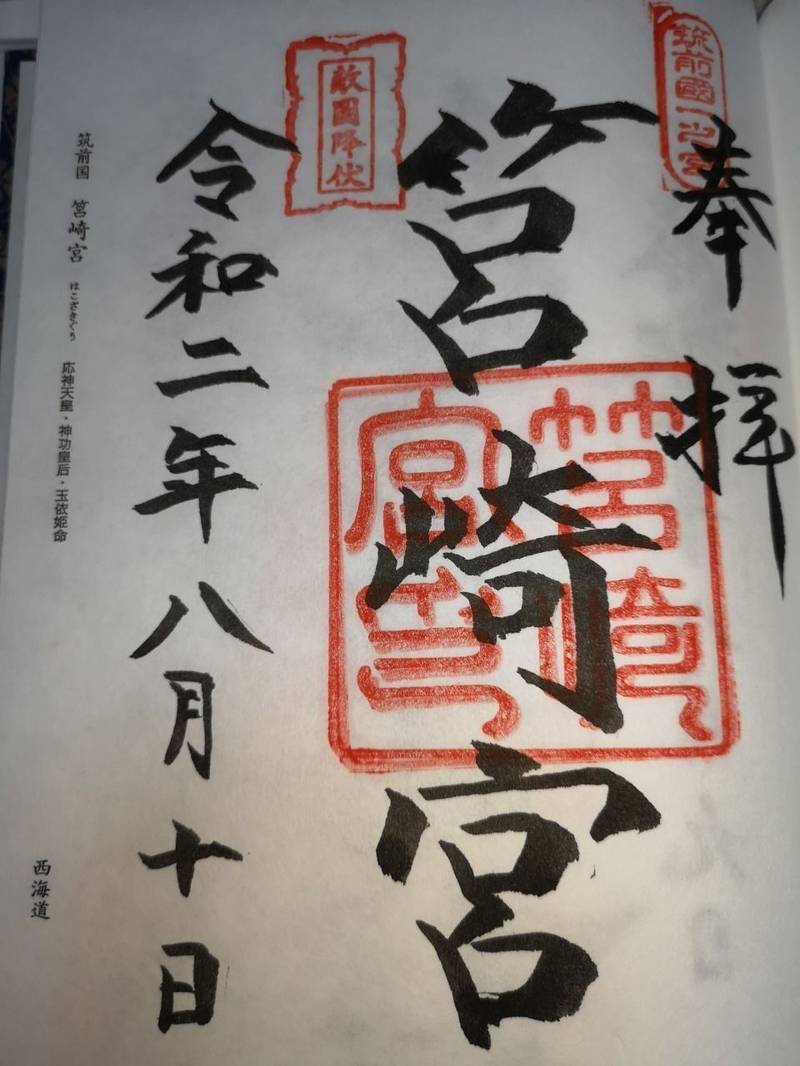 奉拝
筑前國一之宮
筥崎宮
筥崎宮印
敵國降伏
令和二年八月十日
筑前国 筥崎宮 はこざきぐう 応神天皇・神功皇后・玉依姫命
西海道